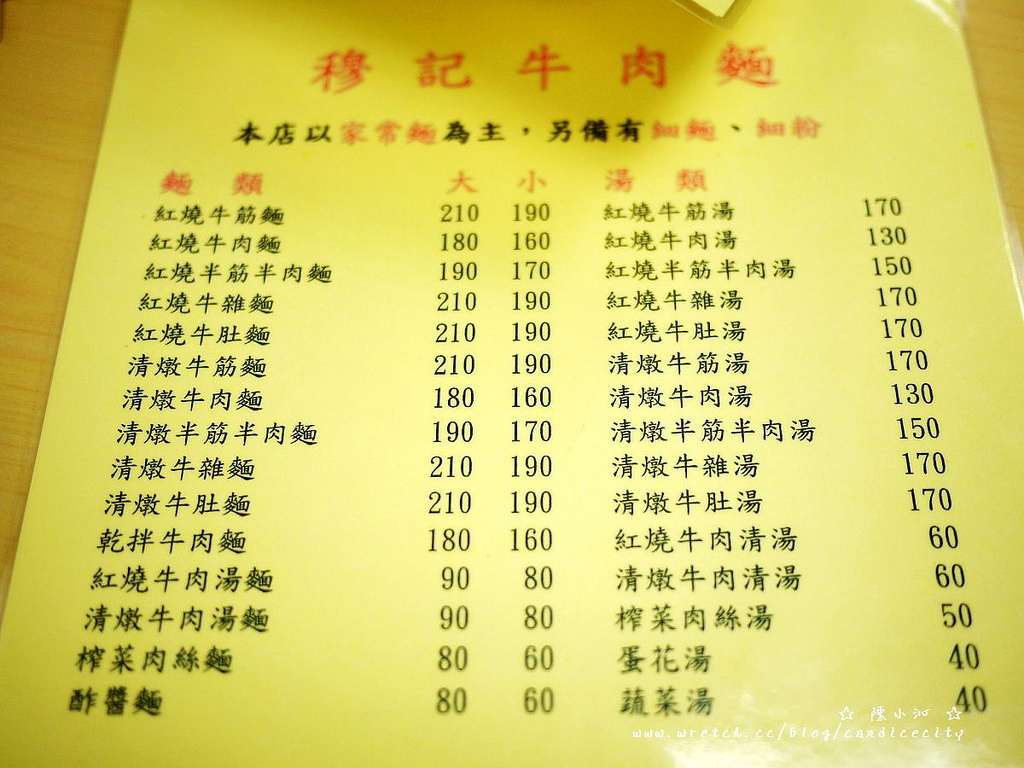 穆記牛肉麵
本店以家常麵為主，另備有細麵、細粉
麵類 大 小 湯類
紅燒牛筋麵 210 190 紅燒牛筋湯 170
紅燒牛肉麵 180 160 紅燒牛肉湯 130
紅燒半筋半肉麵 190 170 紅燒半筋半肉湯 150
紅燒牛雜麵 210 190 紅燒牛雜湯 170
紅燒牛肚麵 210 190 紅燒牛肚湯 170
清燉牛筋麵 210 190 清燉牛筋湯 170
清燉牛肉麵 180 160 清燉牛肉湯 130
清燉半筋半肉麵 190 170 清燉半筋半肉湯 150
清燉牛雜麵 210 190 清燉牛雜湯 170
清燉牛肚麵 210 190 清燉牛肚湯 170
乾拌牛肉麵 180 160 紅燒牛肉清湯 60
紅燒牛肉湯麵 90 80 清燉牛肉清湯 60
清燉牛肉湯麵 90 80 榨菜肉絲湯 50
榨菜肉絲麵 80 60 蛋花湯 40
酢醬麵 80 60 蔬菜湯 40
☆ 陳小沁 ☆
www.wretch.cc/blog/candicecity